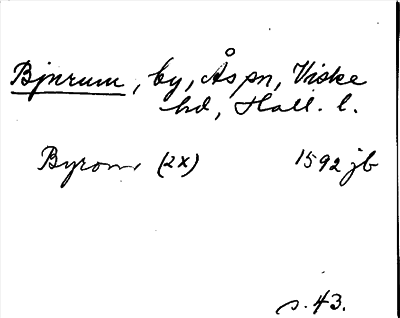 Bjnrum, by, Ås pn, Viske
hd, Hall. l.
Byrom (2x) 1592 jb
s. 43.